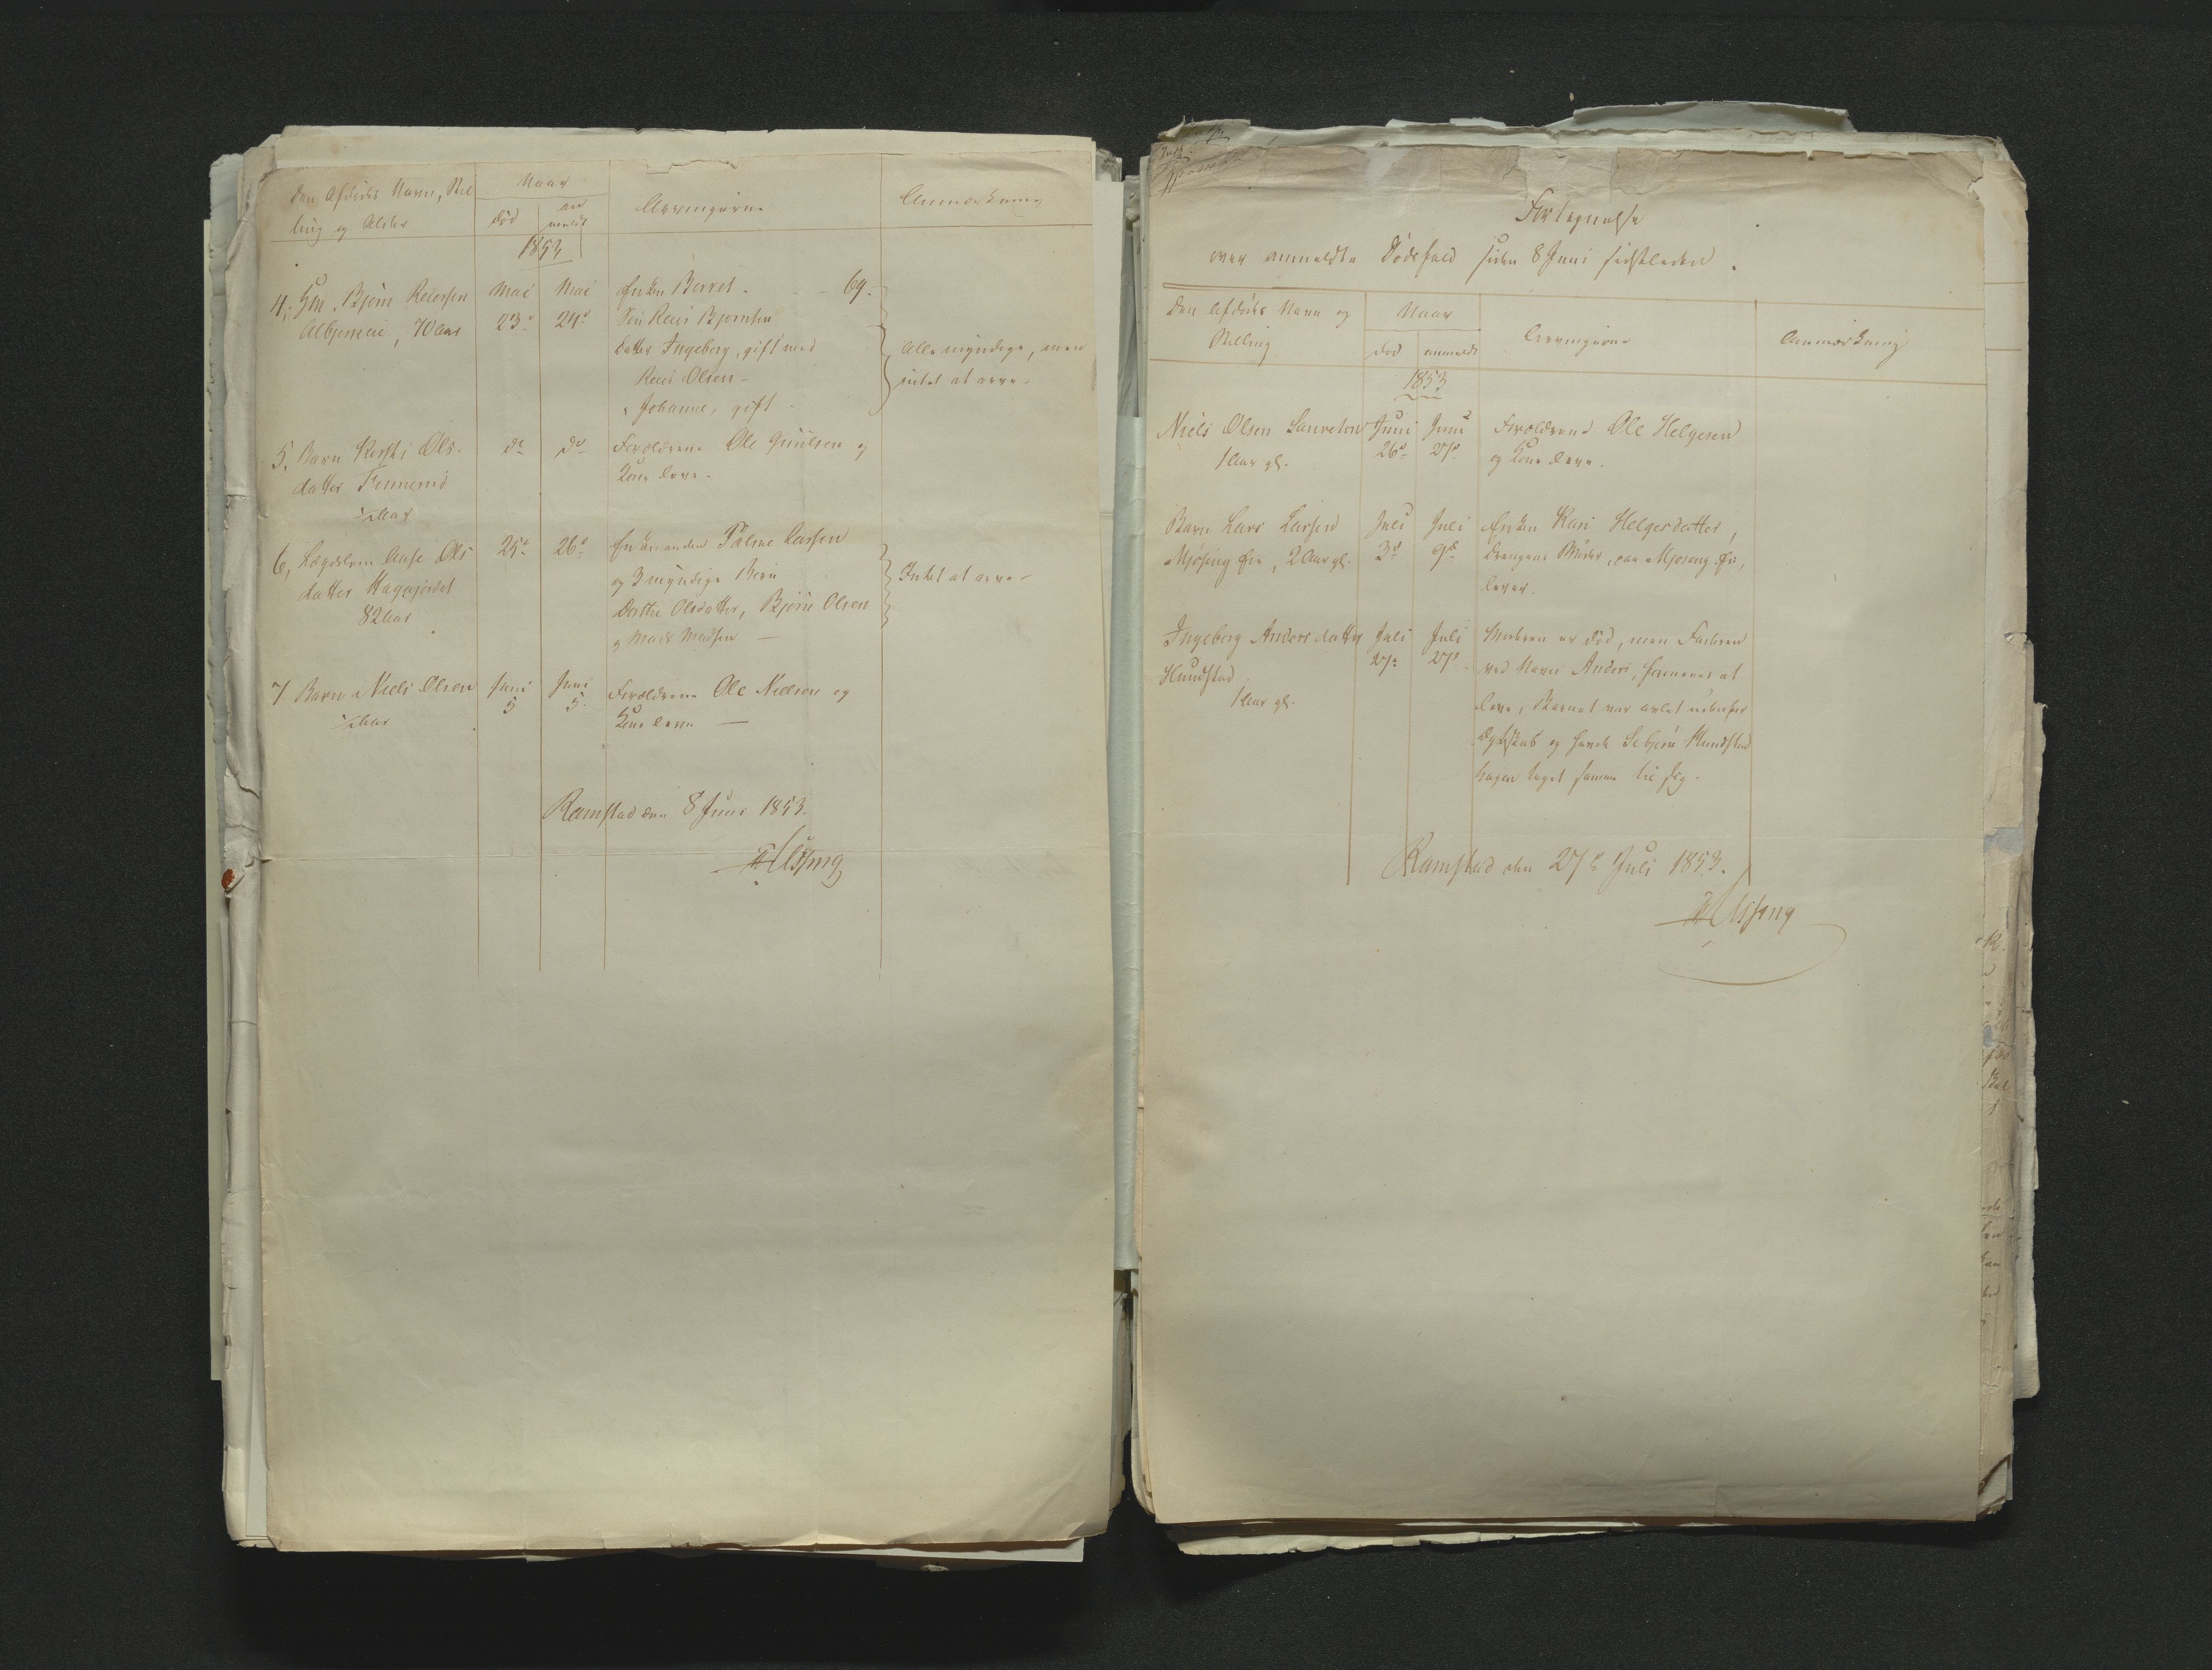 Den Afdødes Navn, Stil
ling og Alder
Naar
død
an
meldt
Arvingerne
Anmærkning
1853
4, Gm. Bjørn Reiersen
Albjerseie, 70 Aar
Mai
23d
Mai
24d
Enken Berret.
69.
Søn Reier Bjørnsen
Datter Ingeborg, gift med
Reier Olsen
" Johanne, gift
Alle myndige, men
intet at arve.
5. Barn Kersti Ols-
datter Finnerud
½ Aar
do
do
Forældrene Ole Guulsen og
Kone leve.
6, Lægdslem Aase Ols
datter Hagagjerdet
82 Aar
25d
26d
Enkemanden Palme Larsen
og 3 myndige Børn
Dorthe Olsdatter, Bjørn Olsen
og Mads Madsen
Intet at arve
7 Barn Niels Olsen
½ Aar
Juni
5
Juni
5.
Forældrene Ole Nielsen og
Kone leve
Ramstad den 8 Juni 1853.
Fortegnelse
over anmeldte Dødsfald siden 8 Juni sidstleden.
Den Afdødes Navn og
Stilling
Naar
død
anmeldt
Arvingerne
Anmærkning
1853
Niels Olsen
1 Aar gl.
Juni
26d
Juni
27d
Forældrene Ole Helgesen
og Kone leve.
Barn Lars Larsen
Mjøsing Eie, 2 Aar gl.
Juli
3d
Juli
9d
Enken Kari Helgesdatter,
Drengens Moder, paa Mjøsing Eie,
lever.
Ingeborg Andersdatter
Hundstad
1 Aar gl.
Juli
27d
Juli
27d
Moderen er død, men Faderen
ved Navn Anders, formenes at
leve, Barnet var avlet udenfor
Ægteskab og havde Hundstad
hagen taget samme til sig.
Ramstad den 27d Juli 1853.